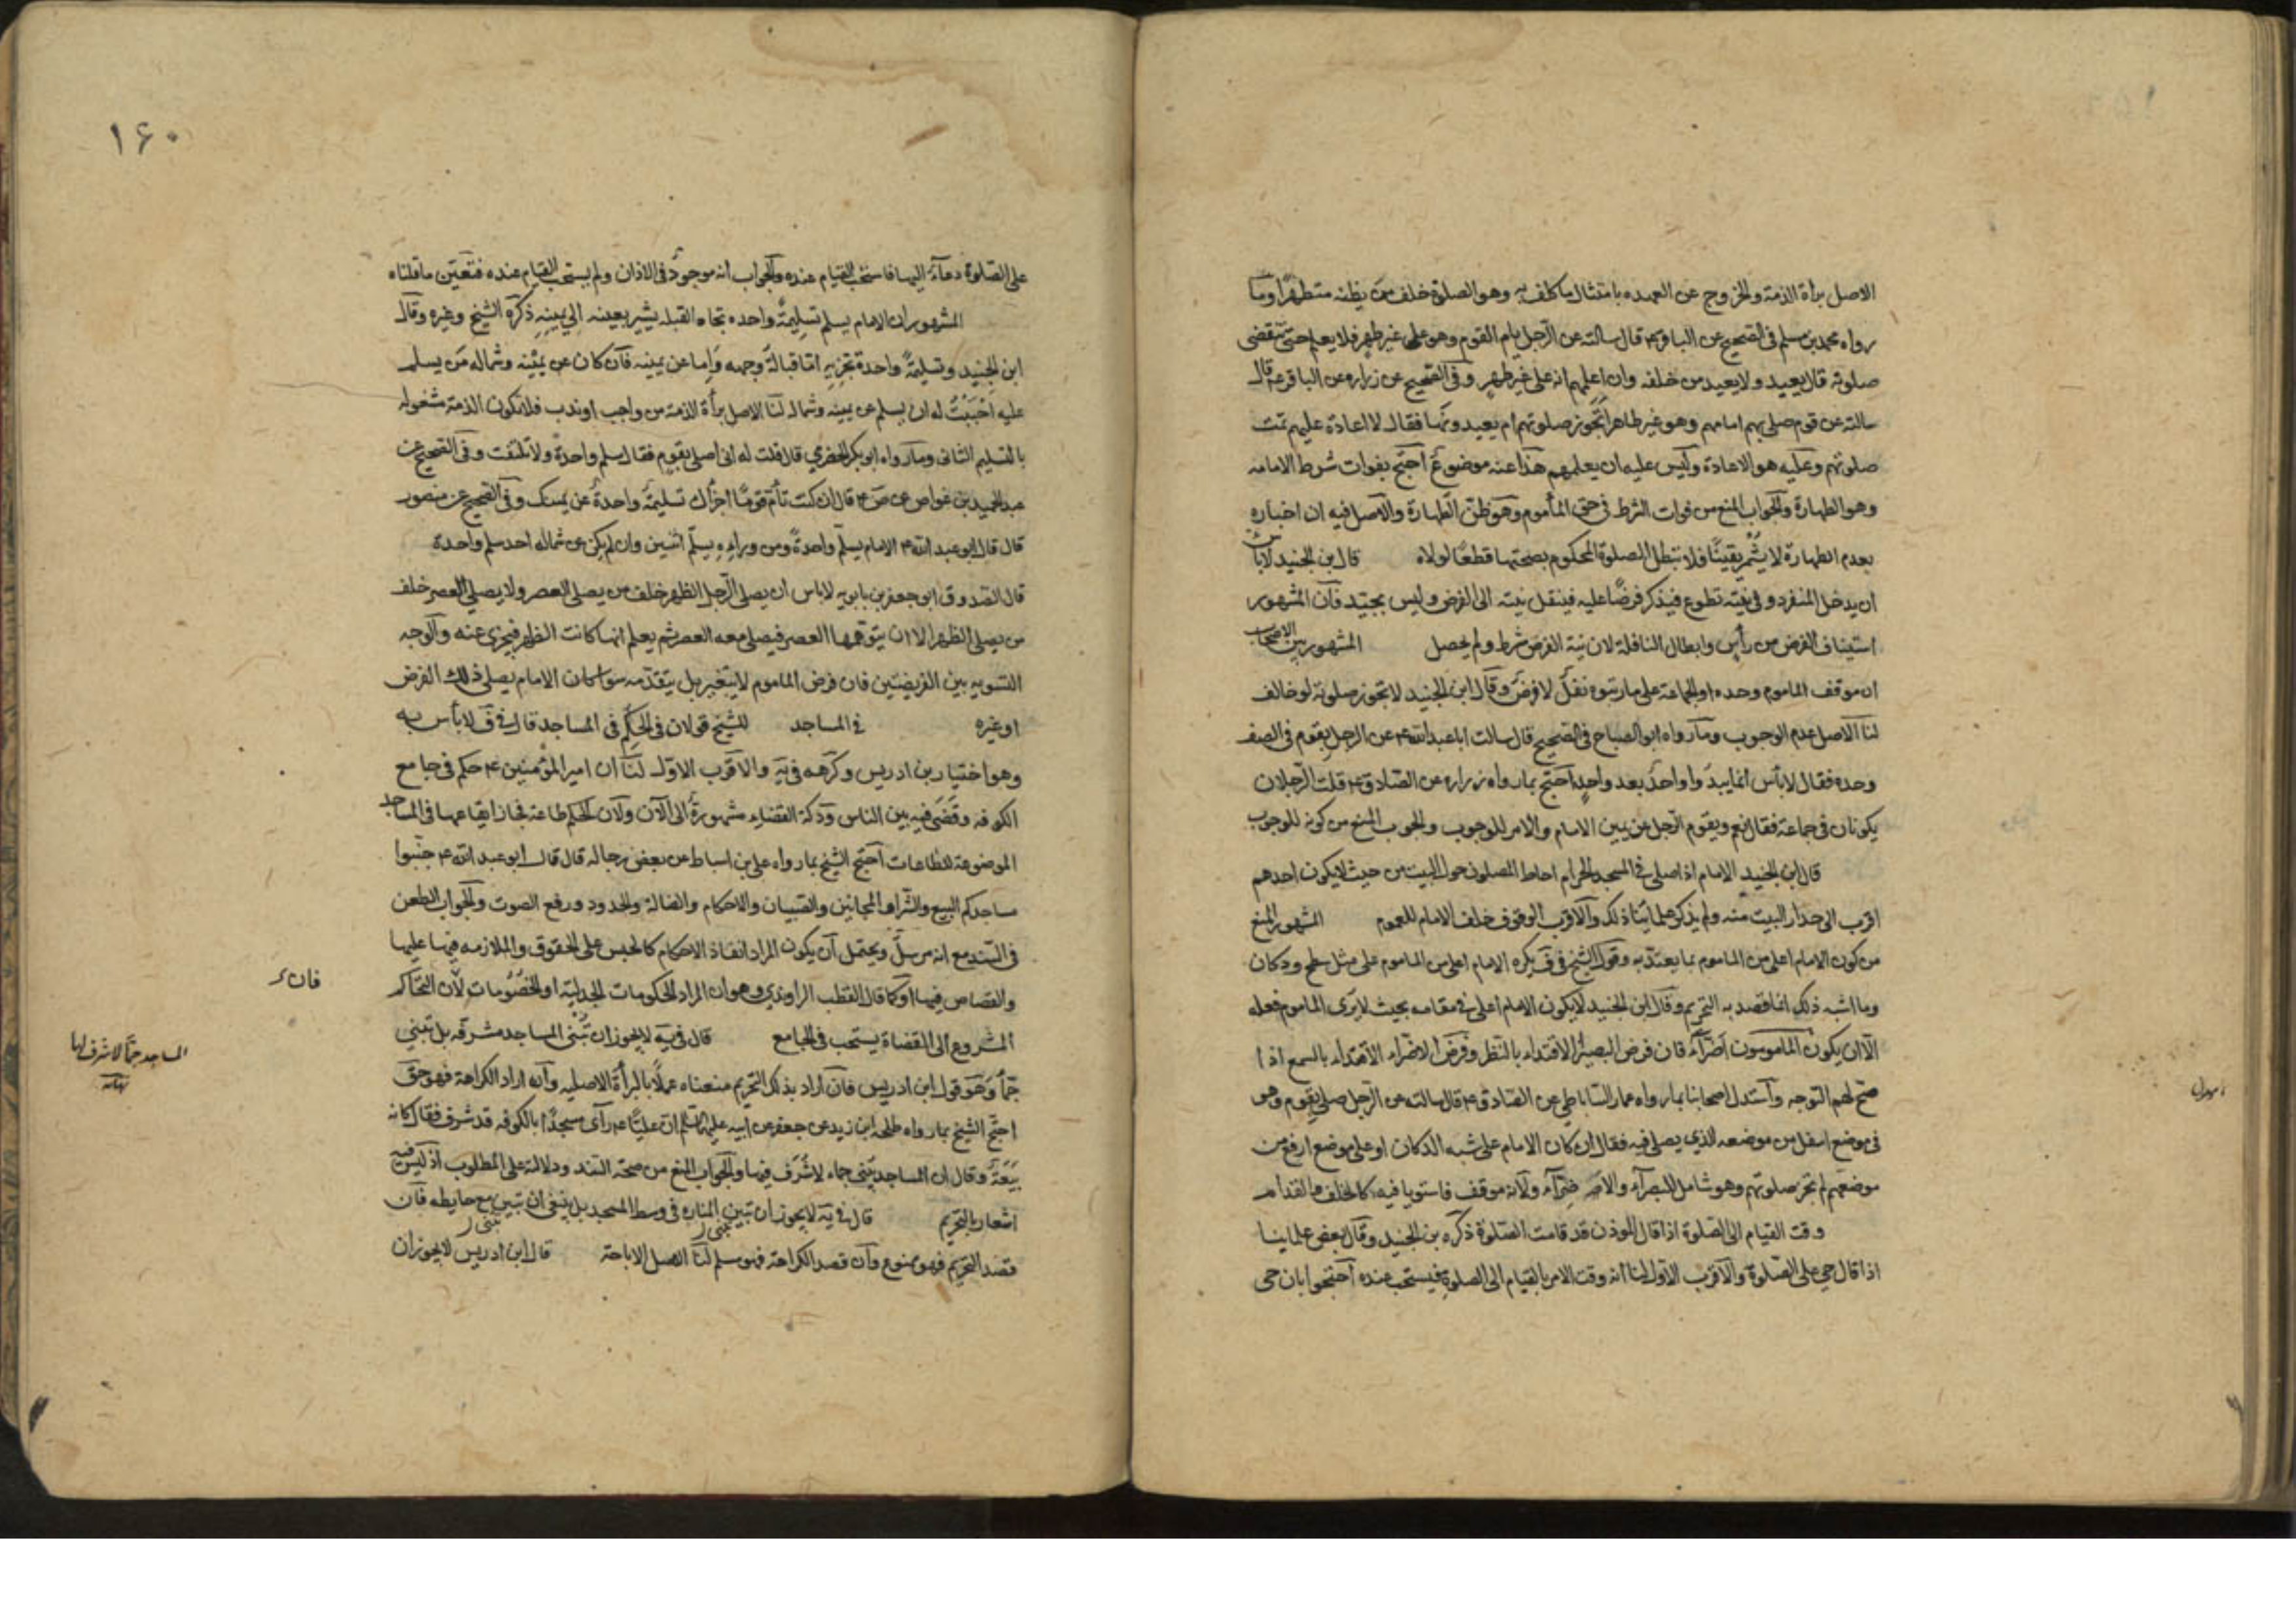 الاصل براة الذمة والخروج عن العهده بامتثال ما كلف به وهو الصلوة خلف من يظنه متطهرا وما
رواه محمد بن مسلم فى الصحيح عن الباقر ع قال سالته عن الرجل يام القوم وهو على غير طهر فلا يعلم حتى تنقضى
صلوته قال يعيد ولا يعيد من خلفه وان اعلمهم انه على غير طهر وفى الصحيح عن زراره عن الباقر ع قال
سالته عن قوم صلى بهم امامهم وهو غير طاهر اتجوز صلوتهم ام يعيدونها فقال لا اعادة عليهم تمت
صلوتهم وعليه هو الاعادة وليس عليه ان يعلمهم هذا عنه موضوع احتج بفوات شرط الامامه
وهو الطهارة والجواب المنع من فوات الشرط فى حق المأموم وهو ظن الطهارة والاصل فيه ان اخباره
بعدم الطهارة لا يثمر يقينًا فلا تبطل الصلوة المحكوم بصحتها قطعًا لولاه قال بن الجنيد لا باس
ان يدخل المنفرد وفى نيته تطوع فيذكر فرضًا عليه فينقل نيته الى الفرض وليس بجيد فان المشهور
استيناف الفرض من رأس وابطال النافلة لان نية الفرض شرط ولم يحصل المشهور بين الاصحاب
ان موقف الماموم وحده او الجماعة على ما رتبوه نفل لا فرض وقال ابن الجنيد لا تجوز صلوته لو خالف
لنا الاصل عدم الوجوب وما رواه ابو الصباح فى الصحيح قال سالت ابا عبد الله ع عن الرجل يقوم فى الصف
وحده فقال لا بأس انما يبدوا واحد بعد واحد احتج بما رواه زراره عن الصادق ع قلت الرجلان
يكونان فى جماعة فقال نعم ويقوم الرجل عن يمين الامام والامر للوجوب والجوب المنع من كونه للوجوب
قال ابن الجنيد الامام اذا صلى فى المسجد الحرام احاط المصلون حول البيت من حيث لا يكون احدهم
اقرب الى جدار البيت منه ولم يذكر علماينا ذلك والاقرب الوقوف خلف الامام للعموم المشهور المنع
من كون الامام اعلى من الماموم بما يعتد به وقول الشيخ فى ف يكره الامام اعلى من الماموم على مثل سطح ودكان
وما اشبه ذلك انما قصد به التحريم وقال ابن الجنيد لا يكون الامام اعلى فى مقامه بحيث لا يرى الماموم فعله
الا ان يكون المامومون اضراء فان فرض البصير الاقتداء بالنظر وفرض الاضراء الاقتداء بالسمع اذا
صح لهم التوجه واستدل اصحابنا بما رواه عمار الساباطى عن الصادق ع قال سالته عن الرجل صلى بقوم وهم
فى موضع اسفل من موضعه الذي يصلى فيه فقال ان كان الامام على شبه الدكان او على موضع ارفع من
موضعهم لم تجز صلوتهم وهو شامل للبصرآء والاضرآء ولانه موقف فاستويا فيه كالخلف والقدام
وقت القيام الى الصلوة اذا قال الموذن قد قامت الصلوة ذكره بن الجنيد وقال بعض علماينا
اذا قال حى على الصلوة والاقرب الاول لنا انه وقت الامر بالقيام الى الصلوة فيستحب عنده احتجوا بان حى
١۶٠
على الصلوة دعآء اليها فاستحب القيام عنده والجواب انه موجود فى الاذان ولم يستحب القيام عنده فتعين ما قلناه
المشهور ان الامام يسلم تسليمة واحده تجاه القبله يشير بعينه الى يمينه ذكره الشيخ وغيره وقال
ابن الجنيد وتسليمة واحدة تجزيه اما قبالة وجهه واما عن يمينه فان كان عن يمينه وشماله من يسلم
عليه احببت له ان يسلم عن يمينه وشماله لنا الاصل برأة الذمة من واجب او ندب فلا تكون الذمة مشغوله
بالتسليم الثانى وما رواه ابو بكر الحضرمي قال قلت له انى اصلى بقوم فقال سلم واحدة ولا تلتفت وفى الصحيح عن
عبد الحميد بن غواص عن ص ع قال ان كنت تأم قوما اجزأك تسليمة واحدة عن يمينك وفى الصحيح عن منصور
قال قال ابو عبد الله ع الامام يسلم واحدة ومن وراءه يسلم اثنين وان لم يكن عن شماله احد سلم واحدة
قال الصدوق ابو جعفر بن بابويه لا باس ان يصلى الرجل الظهر خلف من يصلى العصر ولا يصلى العصر خلف
من يصلى الظهر الا ان يتوهمها العصر فيصلى معه العصر ثم يعلم انها كانت الظهر فيجزى عنه والوجه
التسويه بين الفريضتين فان فرض الماموم لا يتغير بل بتقدمه سواء كان الامام يصلى ذلك الفرض
او غيره فى المساجد للشيخ قولان فى الحكم فى المساجد قال فى ف لا بأس به
وهو اختيار بن ادريس وكرهه فى يه والاقرب الاول لنا ان امير المؤمنين ع حكم فى جامع
الكوفه وقضى فيه بين الناس ودكة القضاء مشهورة الى الآن ولان الحكم طاعة فجاز ايقاعها فى المساجد
الموضوعة للطاعات احتج الشيخ بما رواه على بن اسباط عن بعض رجاله قال قال ابو عبد الله ع جنبوا
مساجدكم البيع والشراء والمجانين والصبيان والاحكام والضالة والحدود ورفع الصوت والجواب الطعن
فى السند مع انه مرسل ويحتمل ان يكون المراد انفاذ الاحكام كالحبس على الحقوق والملازمه فيها عليها
والقصاص فيها او كما قال القطب الراوندي وهو ان المراد الحكومات الجدلية او الخصومات لان التحاكم
المشروع الى القضاة يستحب فى الجامع قال فى يه لا يجوز ان تبنى المساجد مشرفه بل تبنى
جما وهو قول ابن ادريس فان اراد بذلك التحريم منعناه عملا بالبرأة الاصليه وان اراد الكراهة فهو حق
احتج الشيخ بما رواه طلحه ابن زيد عن جعفر عن ابيه عليهما السلم ان عليا ع رآى مسجدا بالكوفه قد شرف فقال كانه
بيعة وقال ان المساجد تبنى جماء لا شرف فيها والجواب المنع من صحة السند ودلالة على المطلوب اذ ليس فيه
اشعار بالتحريم قال فى يه لا يجوز ان تبين المناره فى وسط المسجد بل ينبغى ان تبين مع حايطه فان
تبنى ر تبنى ر
قصد التحريم فهو ممنوع وان قصد الكراهة فهو مسلم لنا الاصل الاباحة قال ابن ادريس لا يجوز ان
فان
المساجد جما لا شرف لها